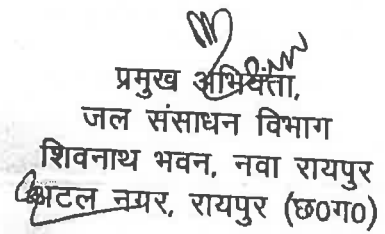 प्रमुख अभियंता,
जल संसाधन विभाग
शिवनाथ भवन, नवा रायपुर
अटल नगर, रायपुर (छ०ग०)